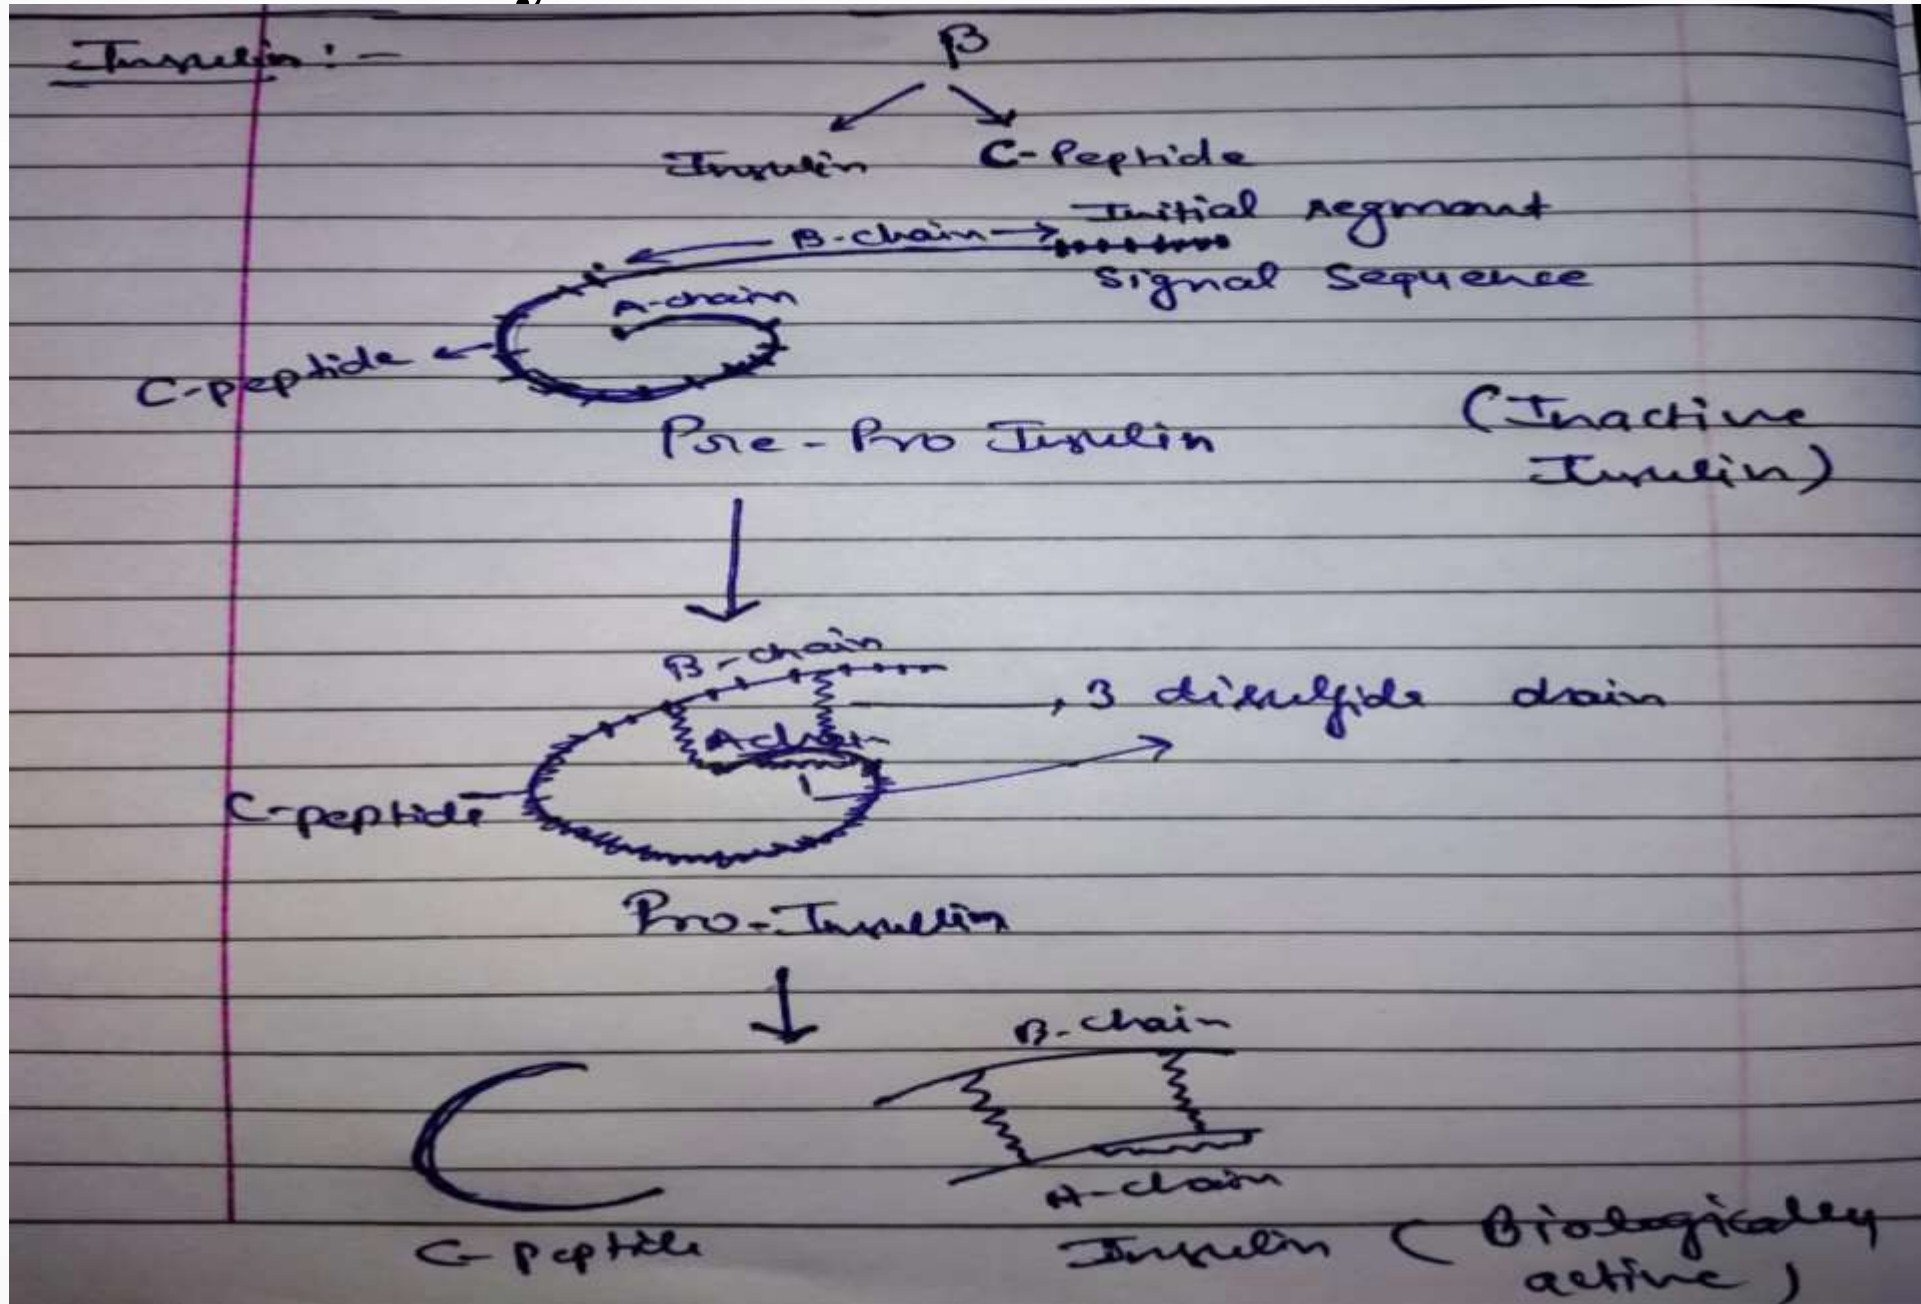 Insulin :-
β
Insulin C-Peptide
Initial segment
B-chain
Signal Sequence
A-chain
C-peptide
Pre-Pro Insulin
(Inactive
Insulin)
B-chain
3 disulfide chain
A chain
C-peptide
Pro-Insulin
B-chain
A-chain
C-peptide
Insulin (Biologically
active)